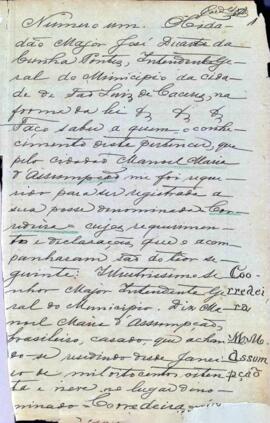 Numero um. Cida-
dão Major José Duarte da
Cunha Pontes, Intendente Ge-
ral do Municipio da cida-
de de São Luiz de Caceres, na
forma da lei & & &
Faço saber a quem o conhe-
cimento deste pertencer, que
pelo cidadão Manoel Maria
d'Assumpção me foi reque-
rido para ser registrada a
sua posse denominada Cor-
redeira e cujos requerimen-
to e declaração, que o acom-
panharam tão do teor se-
guinte: Illustrissimo Se-
nhor Major Intendente Ge-
ral do Municipio. Diz Ma-
noel Maria d'Assumpção,
brasileiro, casado, que achan-
do-se residindo desde Janei-
ro de mil oito centos oiten-
ta e nove, no lugar deno-
minado Corredeira,
Cor-
redei
ra
M. M.
Assum
pção